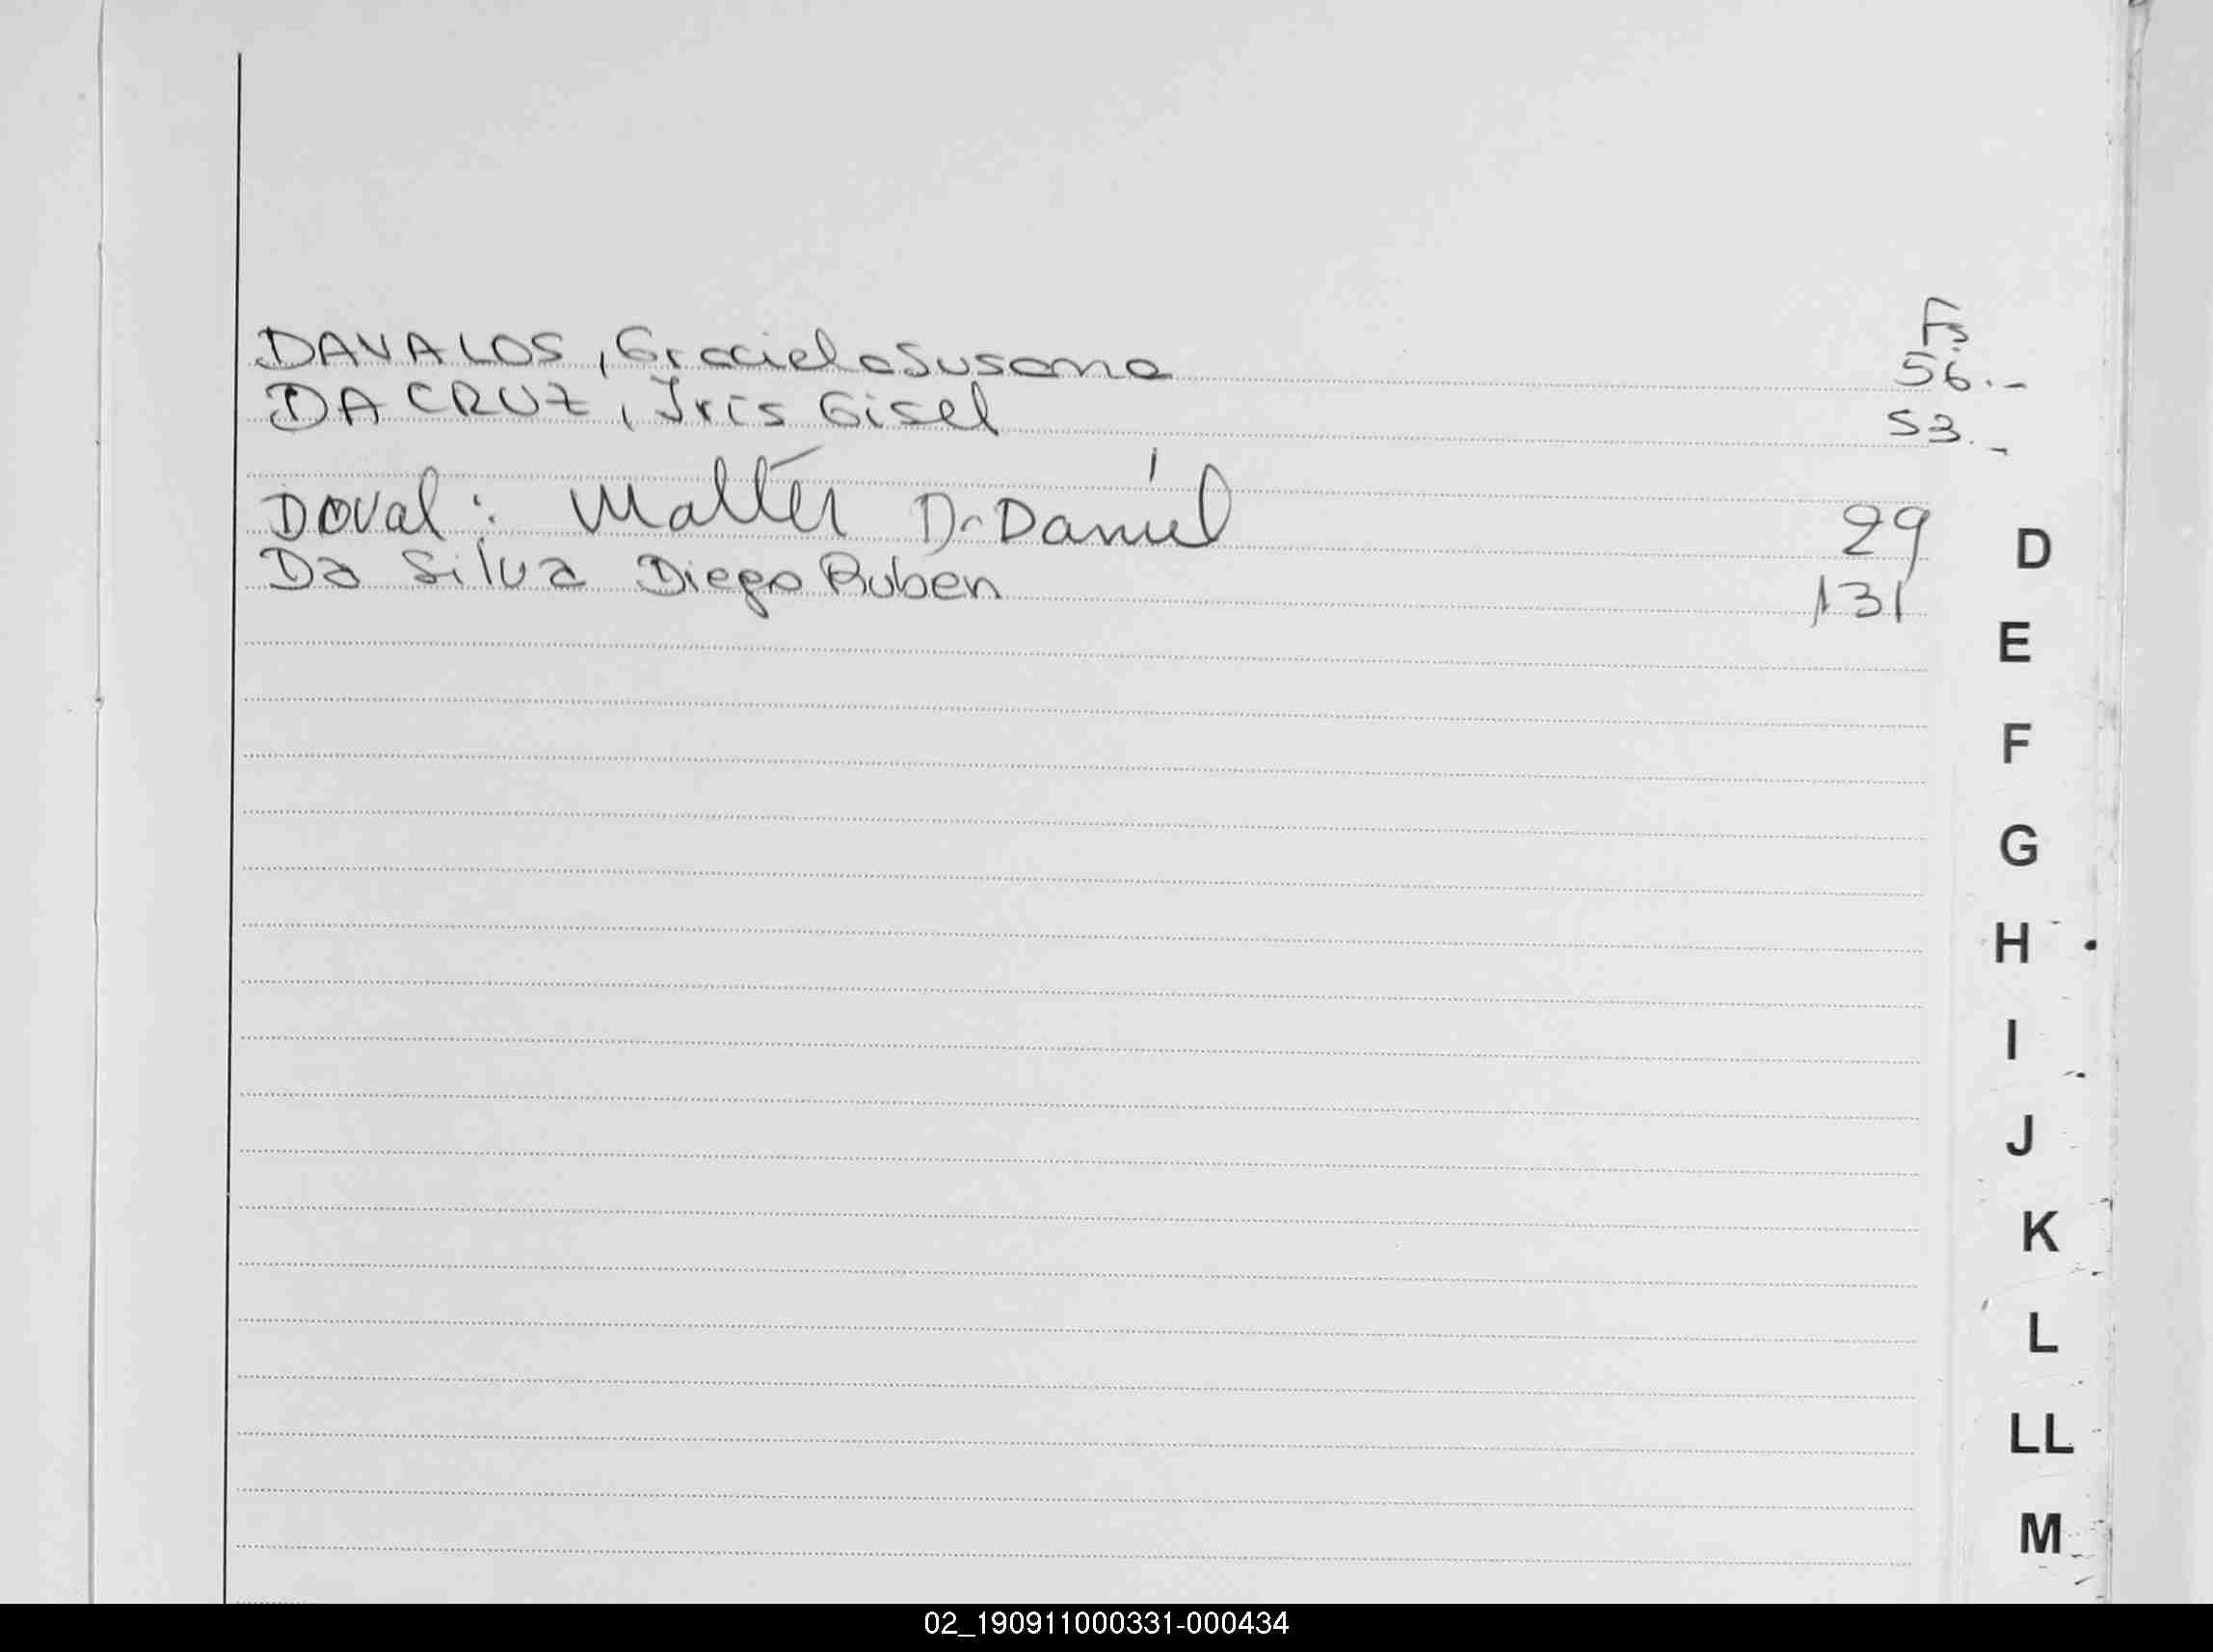 Fs
DAVALOS, Graciela Susana 56.-
DA CRUZ, Iris Gisel 53.-
Doval: Walter D. Daniel 29
Da Silva Diego Ruben 131
D
E
F
G
H
I
J
K
L
LL
M
02_190911000331-000434